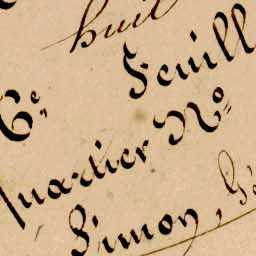 huit
6e. Feuill
quartier No
Simon, G